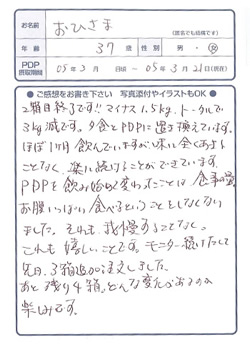 お名前 おひさま
(匿名でも結構です)
年齢 37歳 性別 男・女
PDP摂取期間 05年3月 日頃～05年3月21日(現在)
●ご感想をお書き下さい 写真添付やイラストもOK●
2箱目終了です!! マイナス1.5kg、トータルで
3kg減です。夕食とPDPに置き換えています。
ほぼ1ヶ月飲んでいますが味に全くあきる
ことなく、楽に続けることができています。
PDPを飲み始め変わったことは食事の量
お腹いっぱい食べるということをしなくなり
ました。それも、我慢することなく。
これも嬉しいことです。モニター続けたくて
先日、3箱追加注文しました。
あと残り4箱。どんな変化があるのか
楽しみです。